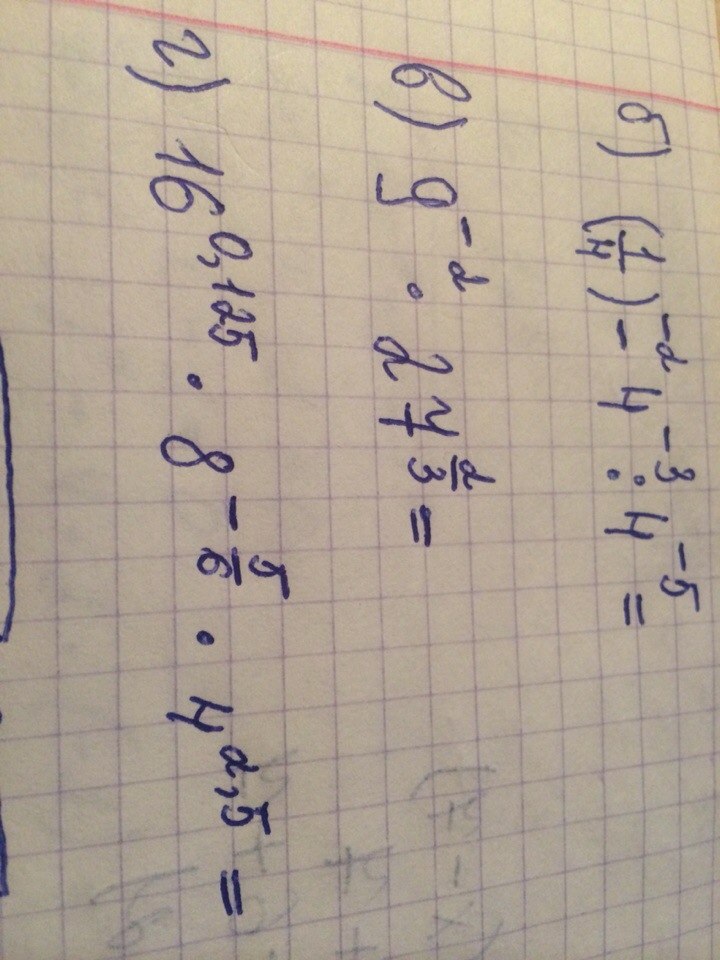 б) (1/4)⁻² - 4⁻³ : 4⁻⁵ =
в) 9⁻² · 27^(2/3) =
г) 16^0,125 · 8^(-5/6) · 4^2,5 =